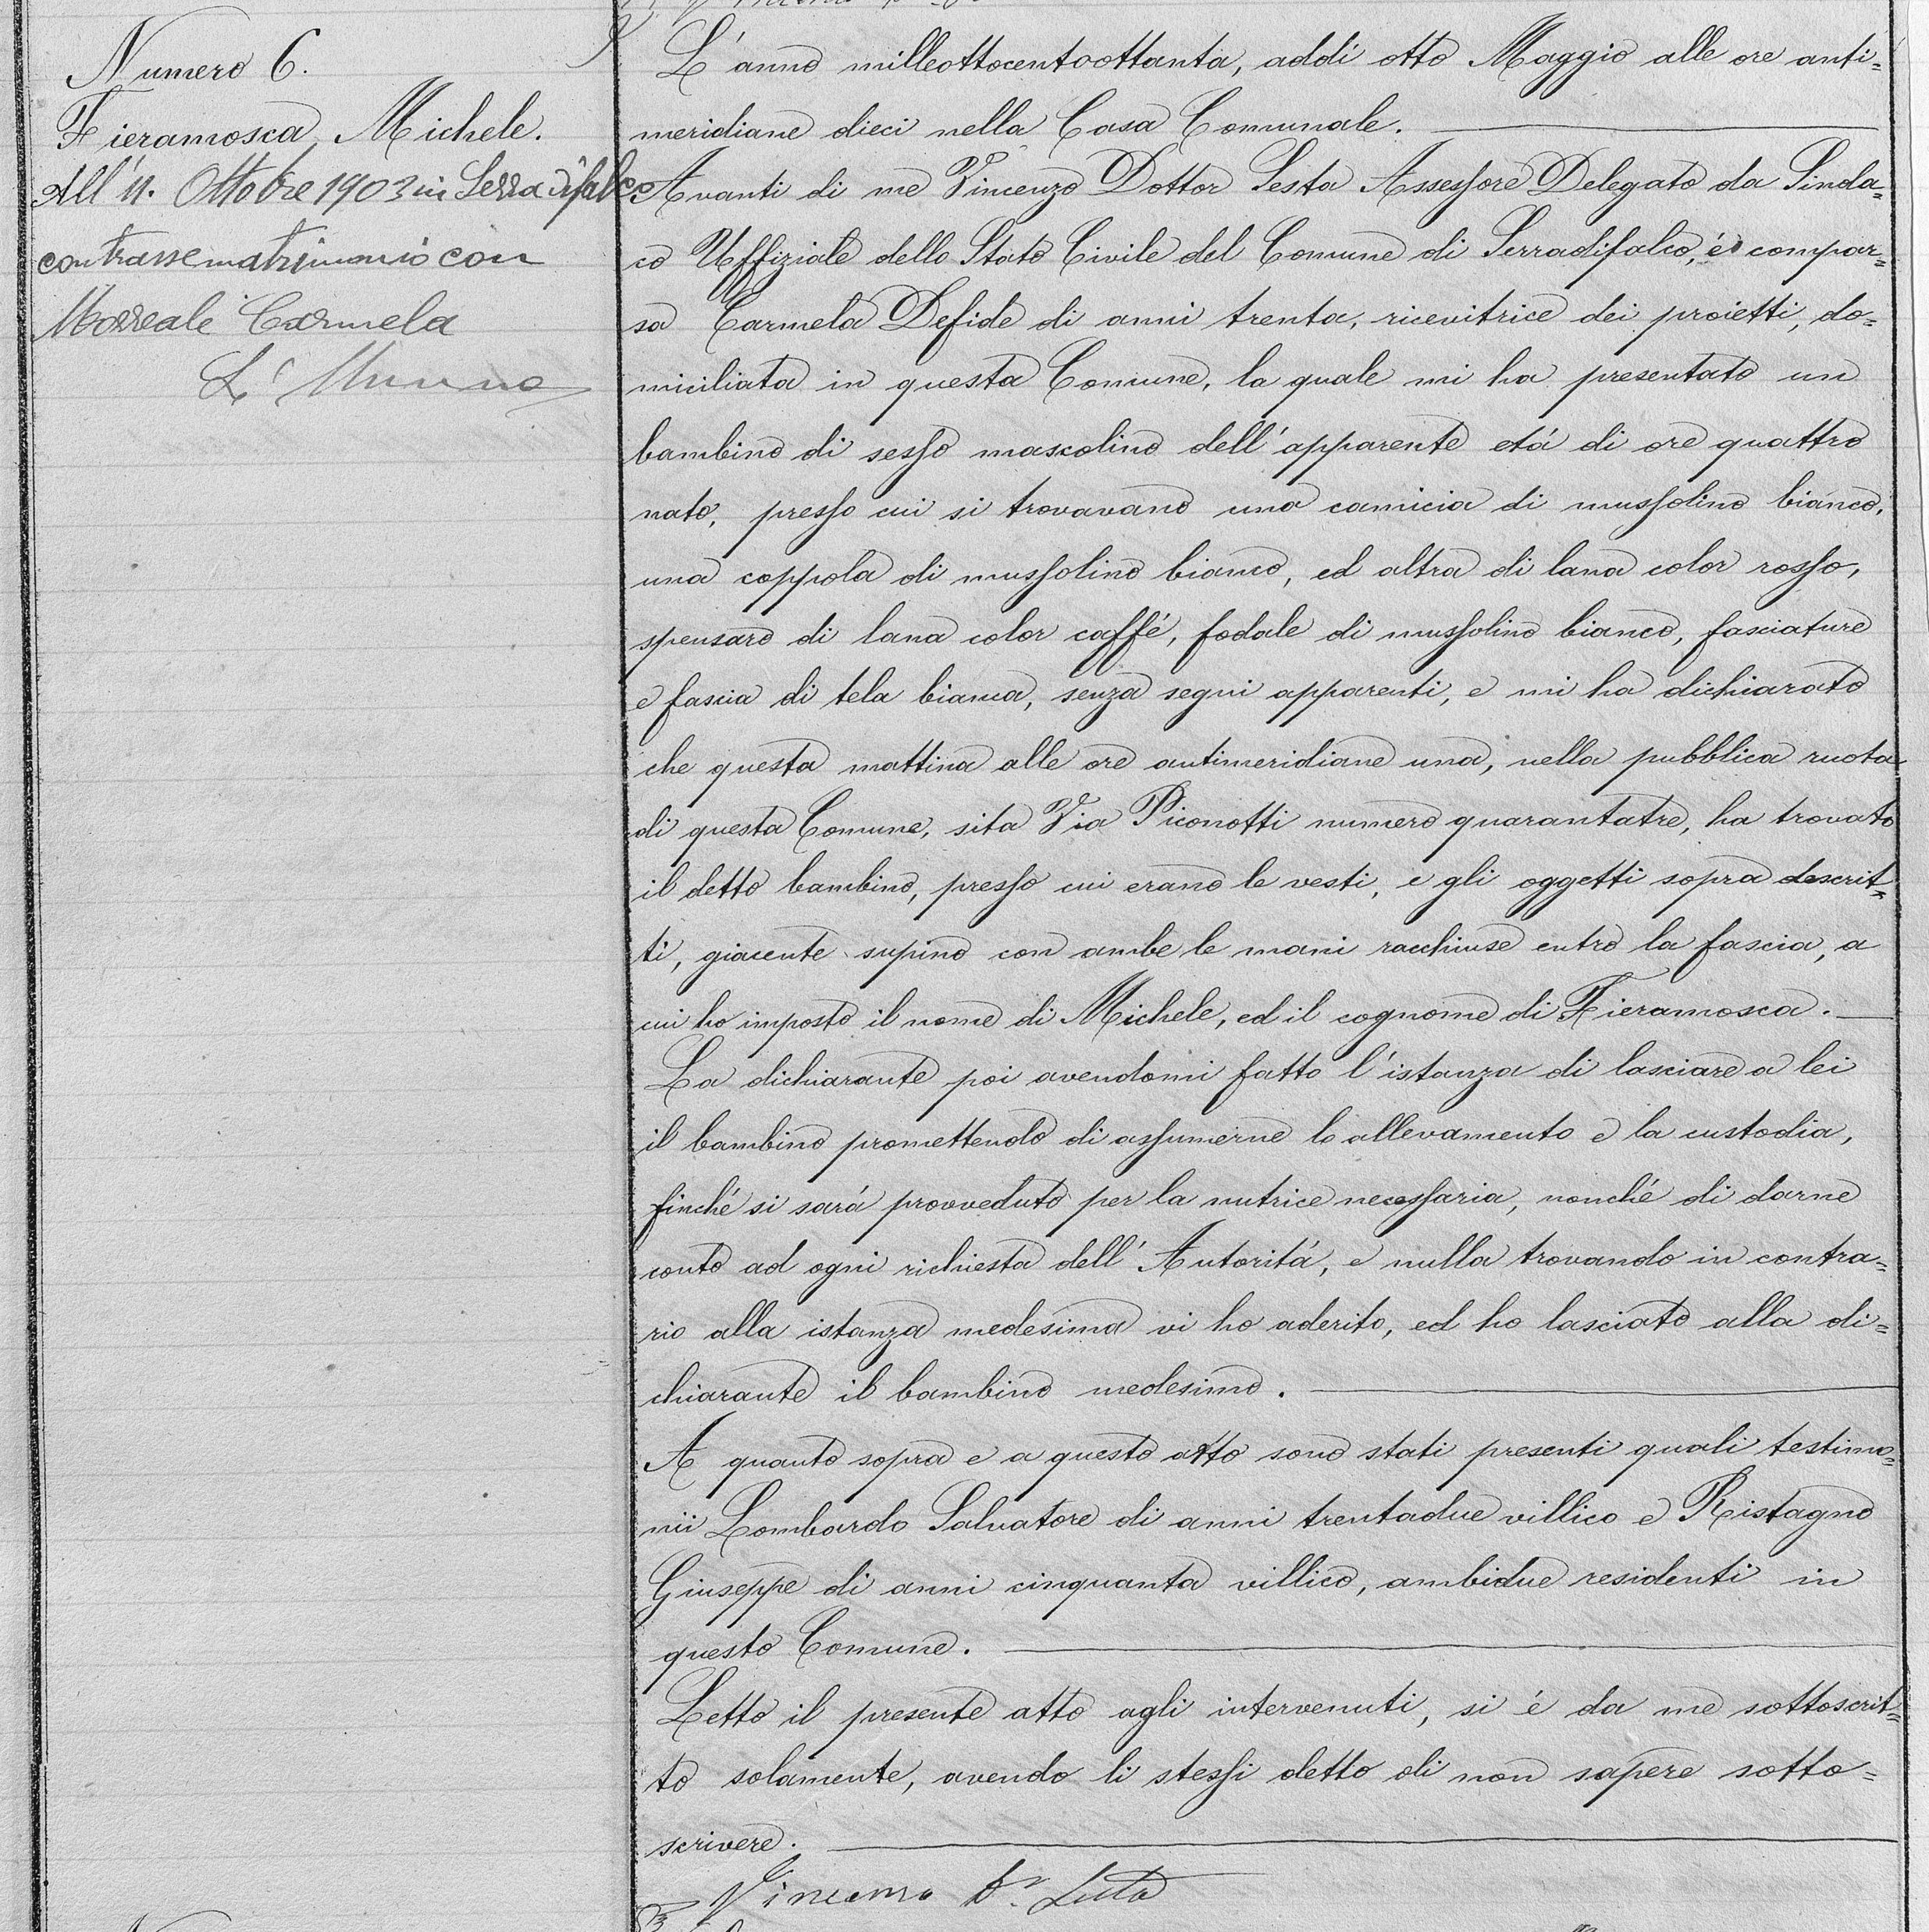 Numero 6.
Fieramosca Michele.
All'11. Ottobre 1903 in Serradifalco
contrasse matrimonio con
Morreale Carmela
L'anno milleottocentoottanta, addì otto Maggio alle ore anti=
meridiane dieci nella Casa Comunale.
Avanti di me Vincenzo Dottor Sesta Assessore Delegato da Sinda=
co Uffiziale dello Stato Civile del Comune di Serradifalco, é compar=
sa Carmela Defide di anni trenta, ricevitrice dei proietti, do=
miciliata in questa Comune, la quale mi ha presentato un
bambino di sesso mascolino dell'apparente etá di ore quattro
nato, presso cui si trovavano una camicia di mussolino bianco,
una coppola di mussolino bianco, ed altra di lana color rosso,
spensaro di lana color caffé, fodale di mussolino bianco, fasciature
e fascia di tela bianca, senza segni apparenti, e mi ha dichiarato
che questa mattina alle ore antimeridiane una, nella pubblica ruota
di questa Comune, sita Via Piconotti numero quarantatre, ha trovato
il detto bambino, presso cui erano le vesti, e gli oggetti sopra descrit=
ti, giacente supino con ambe le mani racchiuse entro la fascia, a
cui ho imposto il nome di Michele, ed il cognome di Fieramosca.
La dichiarante poi avendomi fatto l'istanza di lasciare a lei
il bambino promettendo di assumerne lo allevamento e la custodia,
finché si sará provveduto per la nutrice necessaria, nonché di darne
conto ad ogni richiesta dell'Autoritá, e nulla trovando in contra=
rio alla istanza medesima vi ho aderito, ed ho lasciato alla di=
chiarante il bambino medesimo.
A quanto sopra e a questo atto sono stati presenti quali testimo=
nii Lombardo Salvatore di anni trentadue villico e Ristagno
Giuseppe di anni cinquanta villico, ambidue residenti in
questo Comune.
Letto il presente atto agli intervenuti, si é da me sottoscrit=
to solamente, avendo li stessi detto di non sapere sotto=
scrivere.
Vincenzo Dr. Sesta